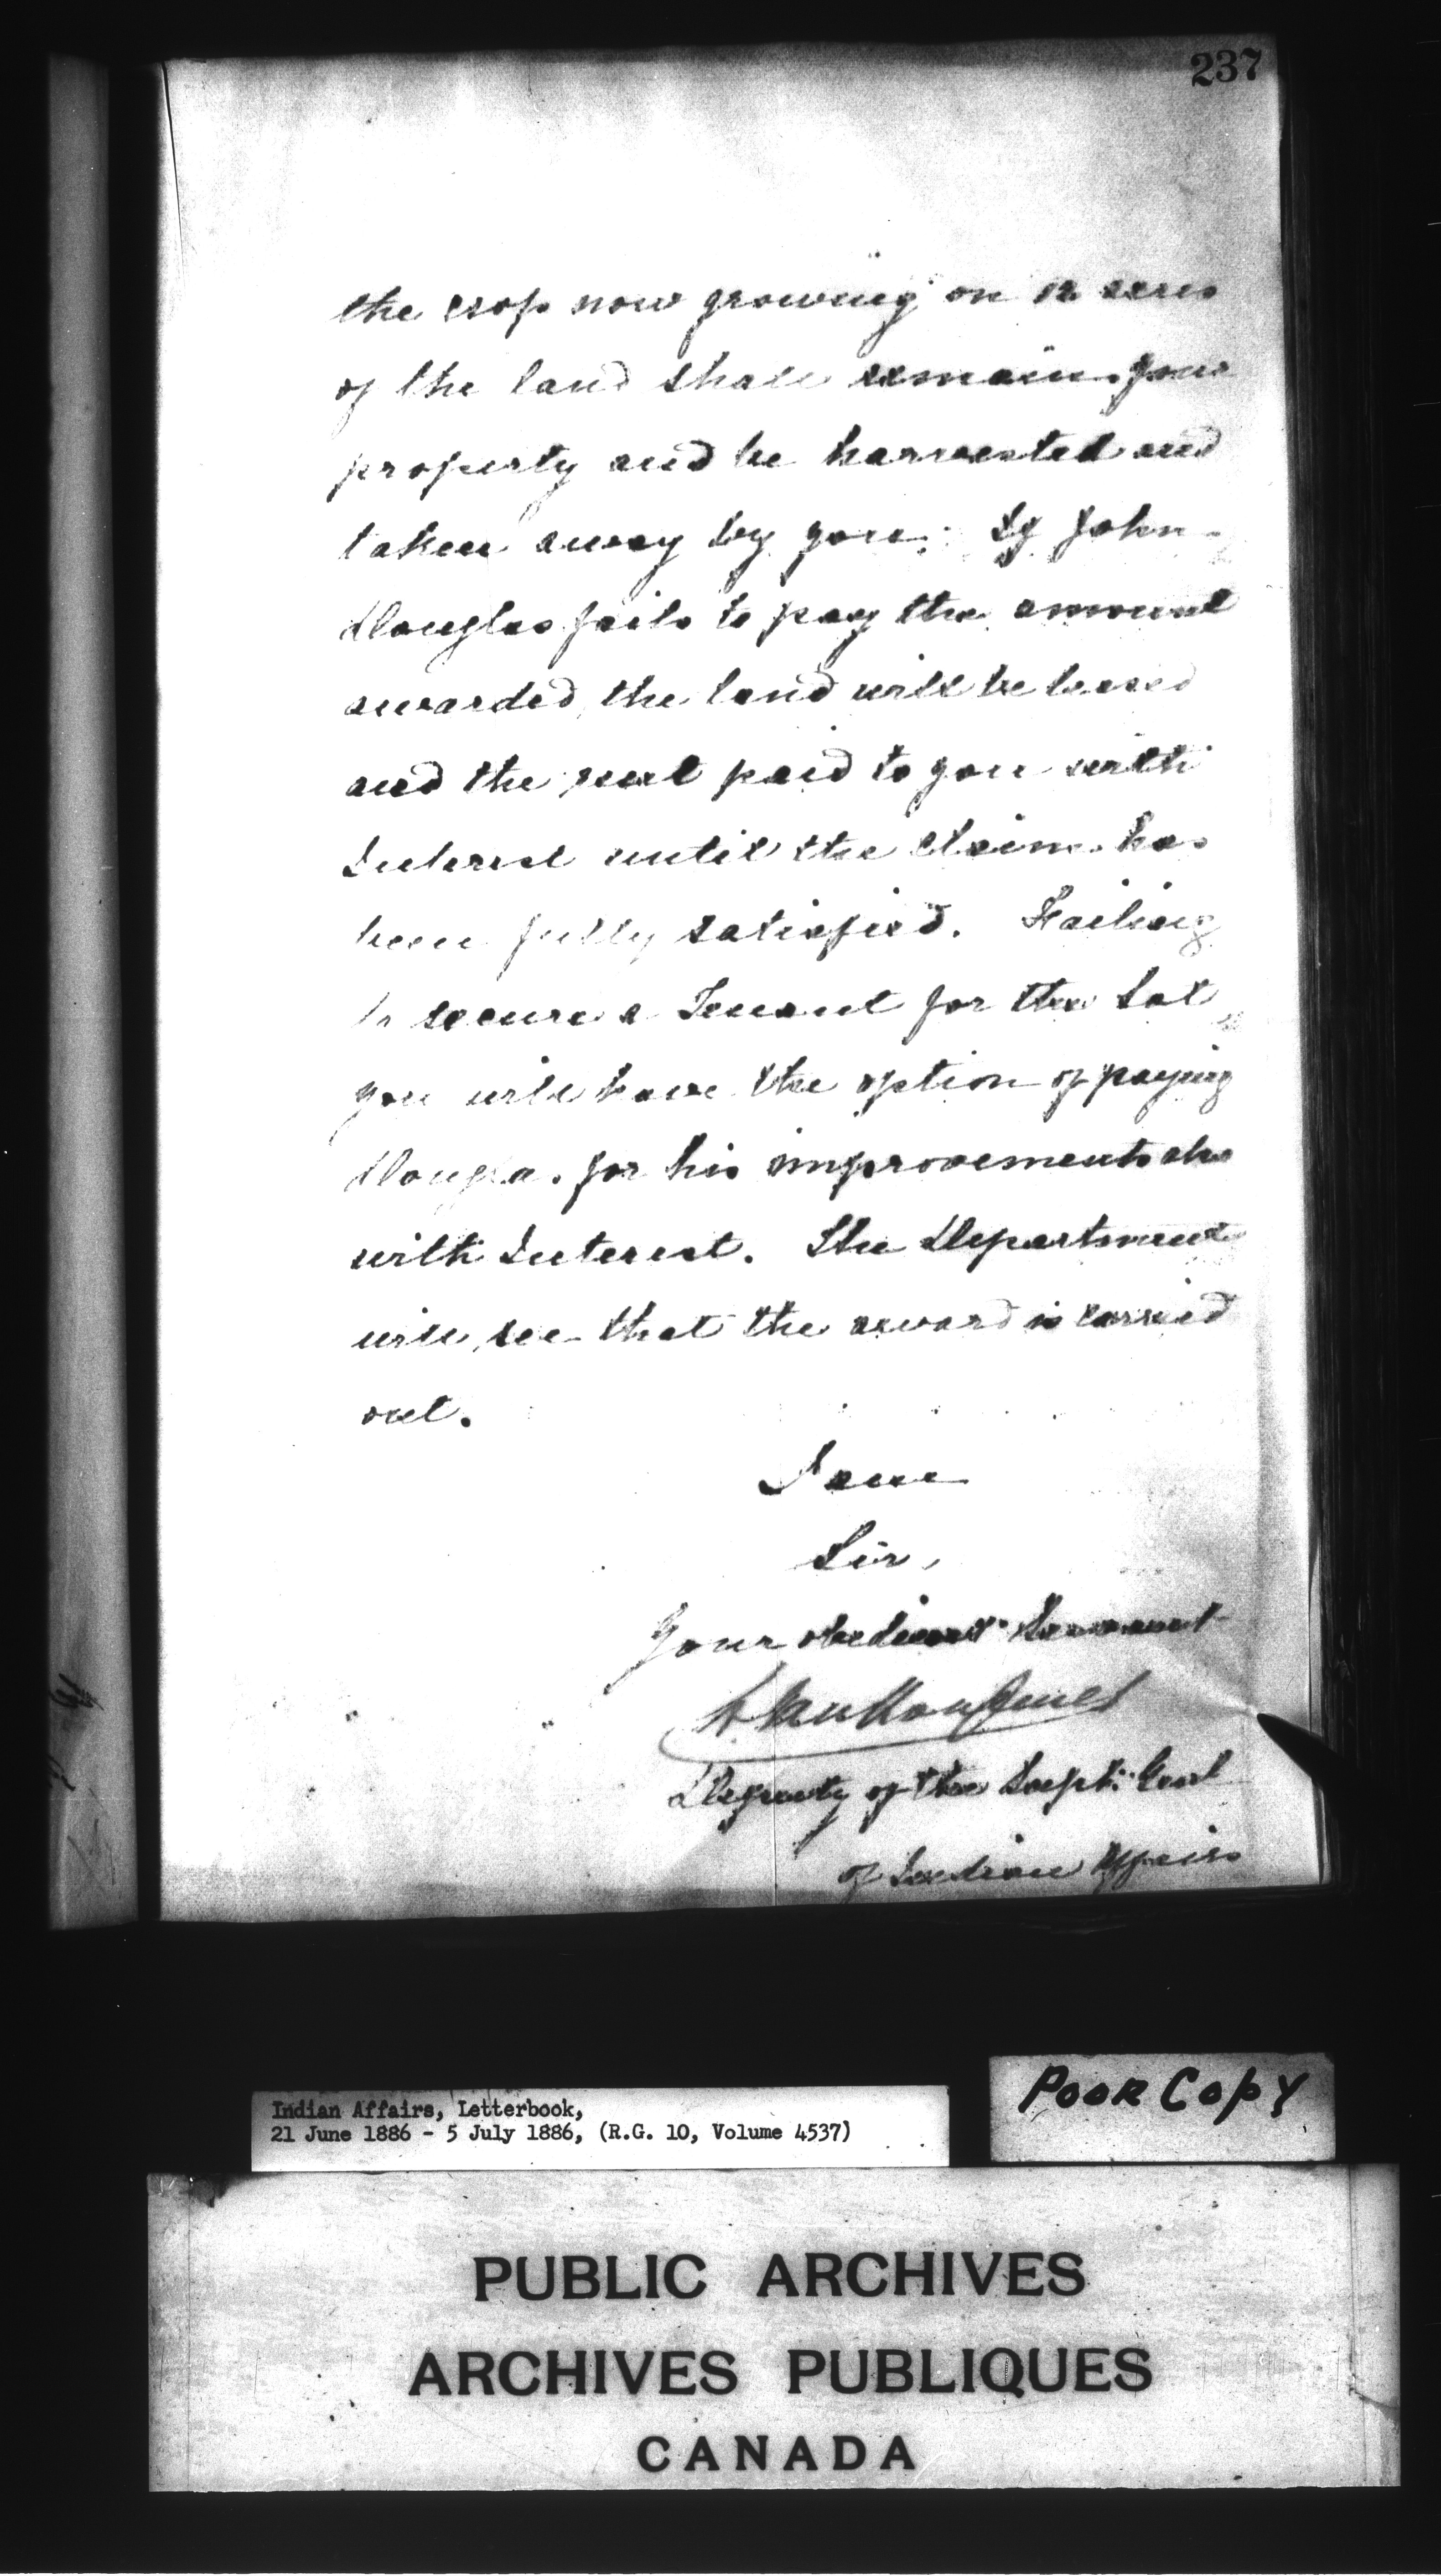 237
the crop now growing on 12 acres
of the land shall remain your
property and be harvested and
taken away by you. If John
Douglas fails to pay the amount
awarded, the land will be leased
and the rent paid to you with
Interest until the claim has
been fully satisfied. Failing
to secure a Tenant for the Lot
you will have the option of paying
Douglas for his improvements also
with Interest. The Department
will see that the award is carried
out.
I am
Sir,
Your obedient Servant
L. VanKoughnet
Deputy of the Supt. Genl
of Indian Affairs
POOR COPY
Indian Affairs, Letterbook,
21 June 1886 - 5 July 1886, (R.G. 10, Volume 4537)
PUBLIC ARCHIVES
ARCHIVES PUBLIQUES
CANADA